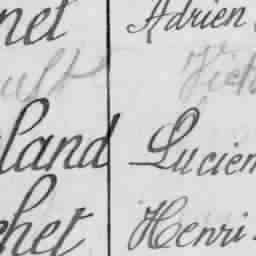 net Adrien
ult Vict
land Lucien
chet Henri